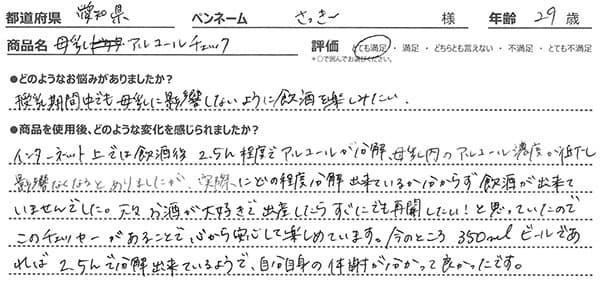 都道府県 愛知県 ペンネーム さっきー 様 年齢 29 歳
商品名 母乳アルコールチェック 評価 とても満足 ・ 満足 ・ どちらとも言えない ・ 不満足 ・ とても不満足
*○で囲んでお選びください。
●どのようなお悩みがありましたか？
授乳期間中でも母乳に影響しないように飲酒を楽しみたい.
●商品を使用後、どのような変化を感じられましたか？
インターネット上では飲酒後 2.5h程度でアルコールが分解、母乳内のアルコール濃度が低下し
影響なくなるとありましたが、実際にどの程度分解出来ているか分からず飲酒が出来て
いませんでした。元々お酒が大好きで出産したらすぐにでも再開したい！と思っていたので
このチェッカーがあることで心から安心して楽しめています。今のところ 350ml ビールであ
れば 2.5hで分解出来ているようで、自分自身の体謝が分かって良かったです。